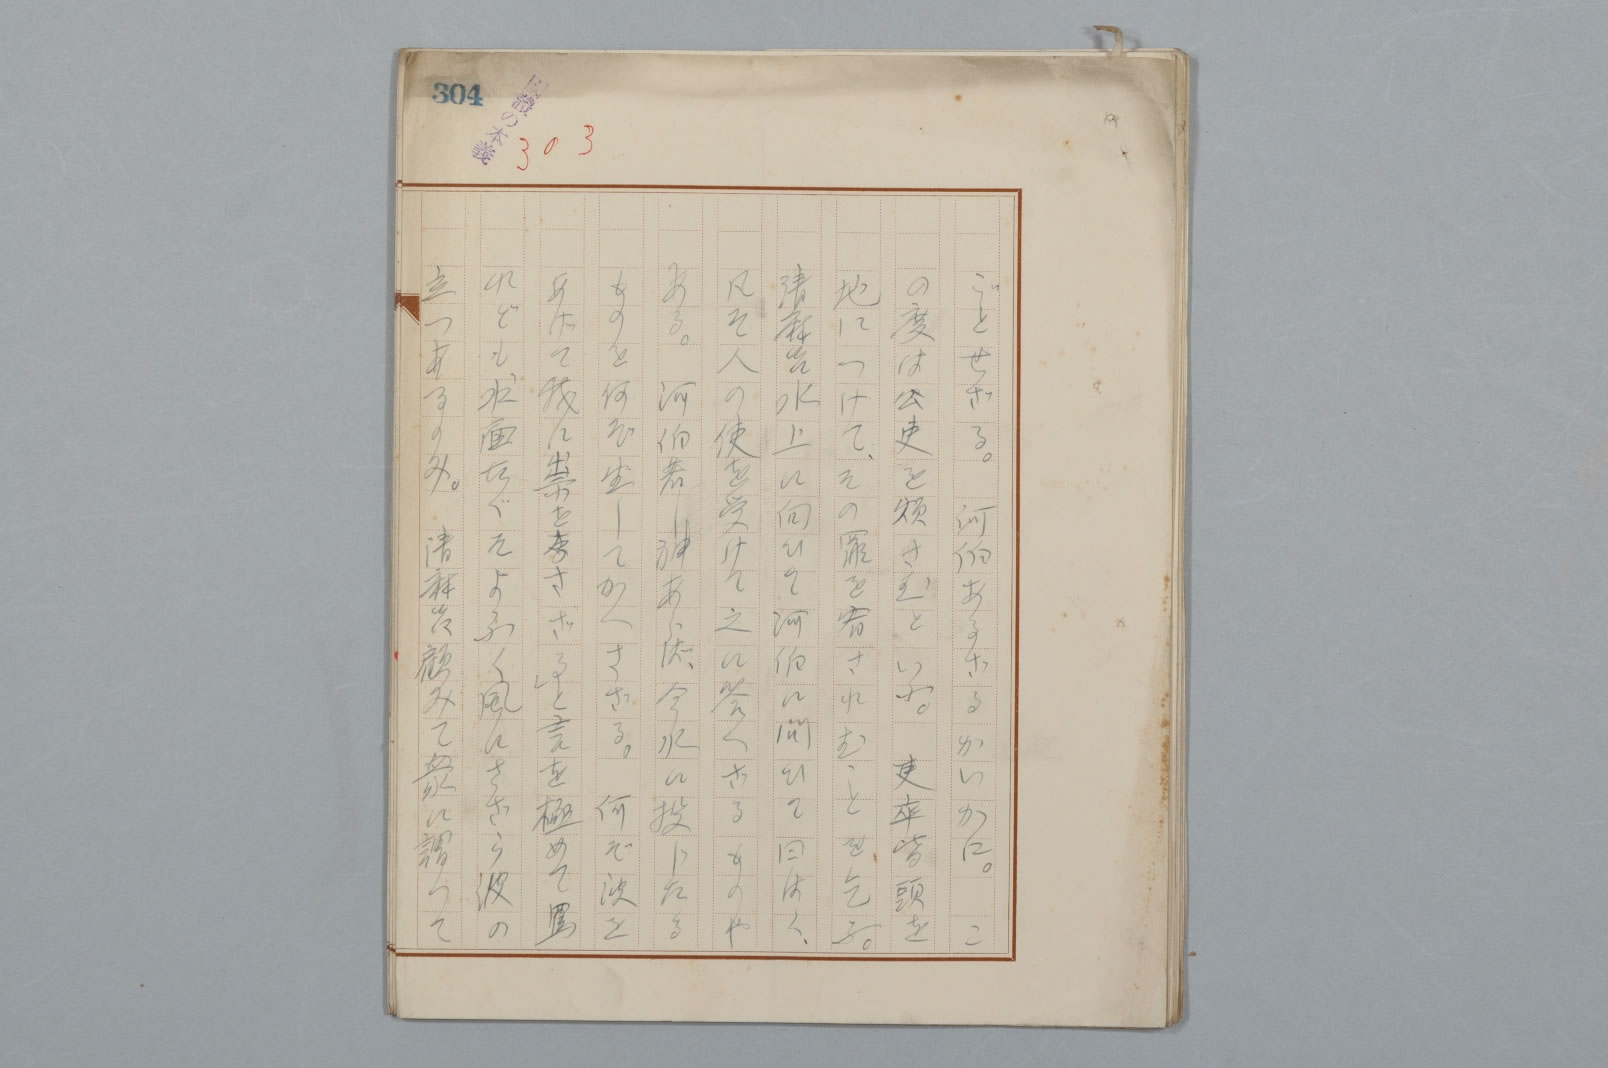 304
国體の本義
303
ごとせざる。河伯あるざるかいかに。こ
の度は公吏を煩さむといふ。吏卒皆頭を
地につけて、その罪を宥されむことを乞ふ。
清麻呂水上に向ひて河伯に問ひて曰はく、
凡そ人の使を受けて之に答へざるものや
ある。河伯若し神あらば、今水に投じたる
ものを何ぞ生してかへさざる。何ぞ波を
あげて我に祟を為さざると言を極めて罵
れども、水面たゞそよふく風にさざら波の
立つあるのみ。清麻呂顧みて衆に謂つて